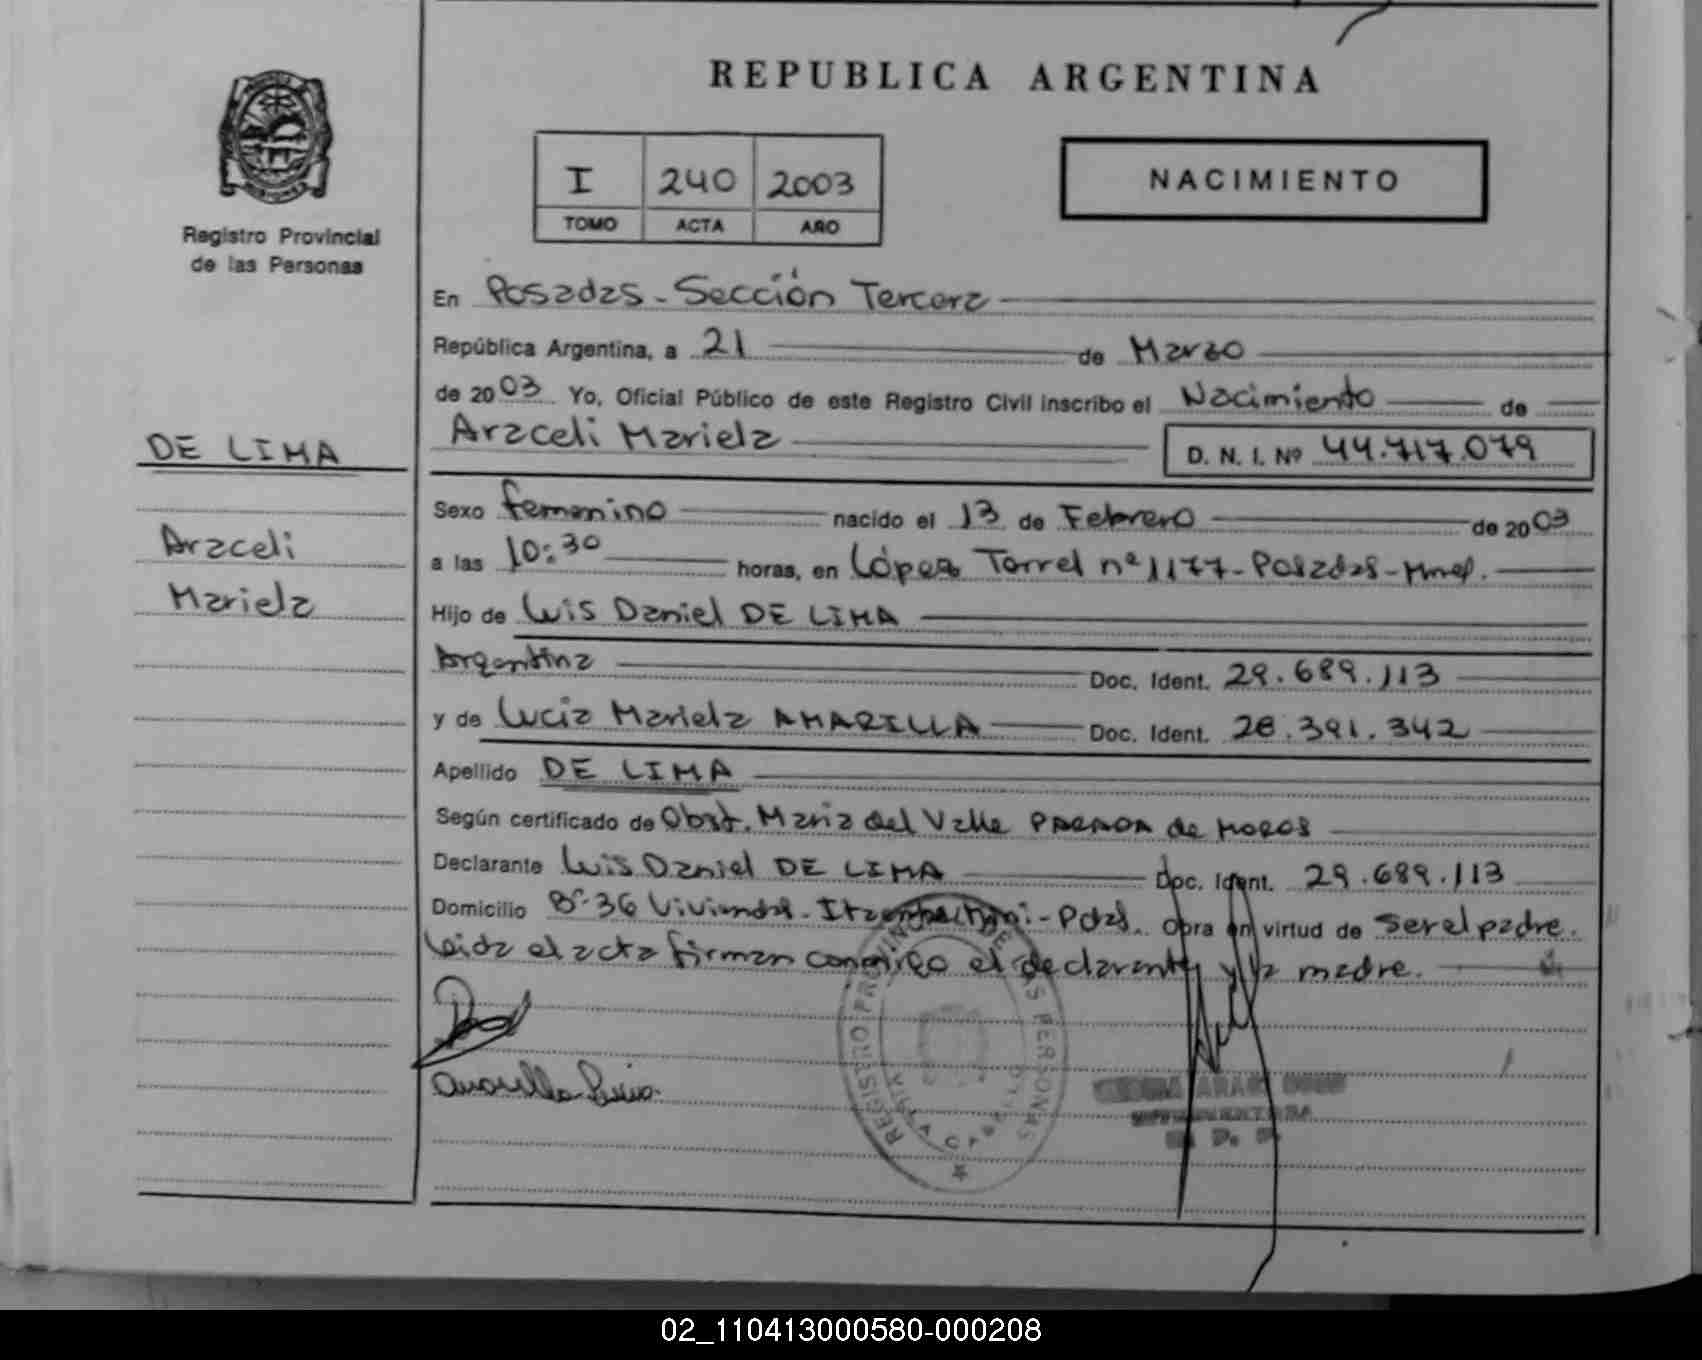 REPUBLICA ARGENTINA
I 240 2003
TOMO ACTA AÑO
NACIMIENTO
Registro Provincial
de las Personas
En Posadas - Sección Tercera
República Argentina, a 21 de Marzo
de 2003 Yo, Oficial Público de este Registro Civil inscribo el Nacimiento de
Araceli Mariela D. N. I. Nº 44.717.079
DE LIMA
Araceli
Mariela
Sexo femenino nacido el 13 de Febrero de 2003
a las 10:30 horas, en López Torres nº 1177 - Posadas - Mnes.
Hijo de Luis Daniel DE LIMA
Argentina Doc. Ident. 29.689.113
y de Lucia Mariela AMARILLA Doc. Ident. 28.391.342
Apellido DE LIMA
Según certificado de Obst. Maria del Valle PARADA de MOROS
Declarante Luis Daniel DE LIMA Doc. Ident. 29.689.113
Domicilio Bº 36 Viviendas - - Pdas. Obra en virtud de ser el padre.
Leida el acta firman conmigo el declarante y la madre.
Amarilla Lucia
REGISTRO PROVINCIAL DE LAS PERSONAS
VILLA CABELLO
02_110413000580-000208